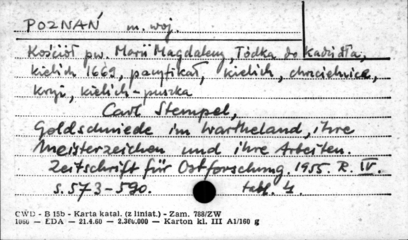 POZNAŃ m. woj.
Kościół pw. Marii Magdaleny, Łódka do kadzidła,
kielich 1662, pacyfikał, kielich, chrzcielnica,
krzyż, kielich-puszka
Carl Stempel,
Goldschmiede im Wartheland, ihre
Meisterzeichen und ihre Arbeiten.
Zeitschrift für Ostforschung. 1955. R. IV.
s. 573-590. tabl. 4.
CWD - B 15b - Karta katal. (z liniat.) - Zam. 788/ZW
1966 — EDA — 21.4.60 — 2.380.000 — Karton kl. III A1/160 g